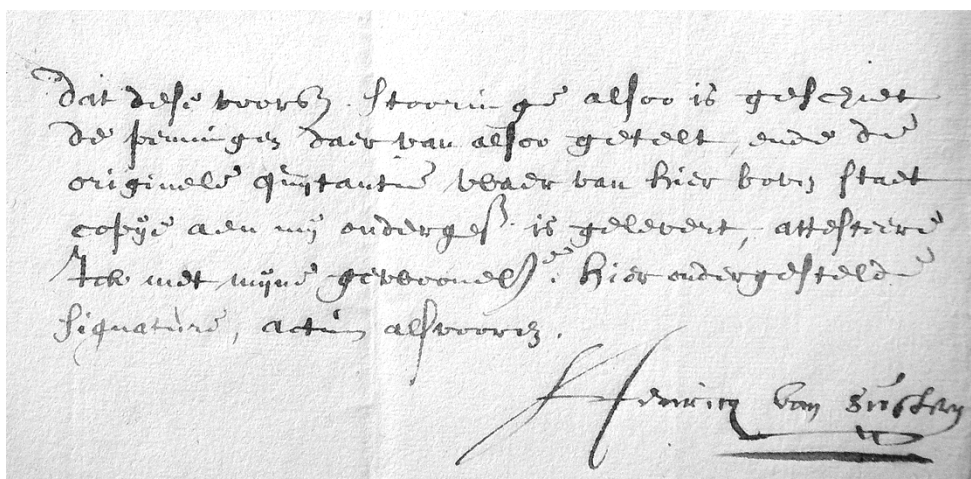 dat dese voorsz. stooringe alsoo is geschiet
de penningen daer van alsoo getelt, ende de
originele quytantie, waer van hier boven staet
copÿe aen mÿ onderges. is gelevert, attesteere
Ick met mÿne gewoonel. hier ondergestelde
signature, actum als voorsz.
Henricq van